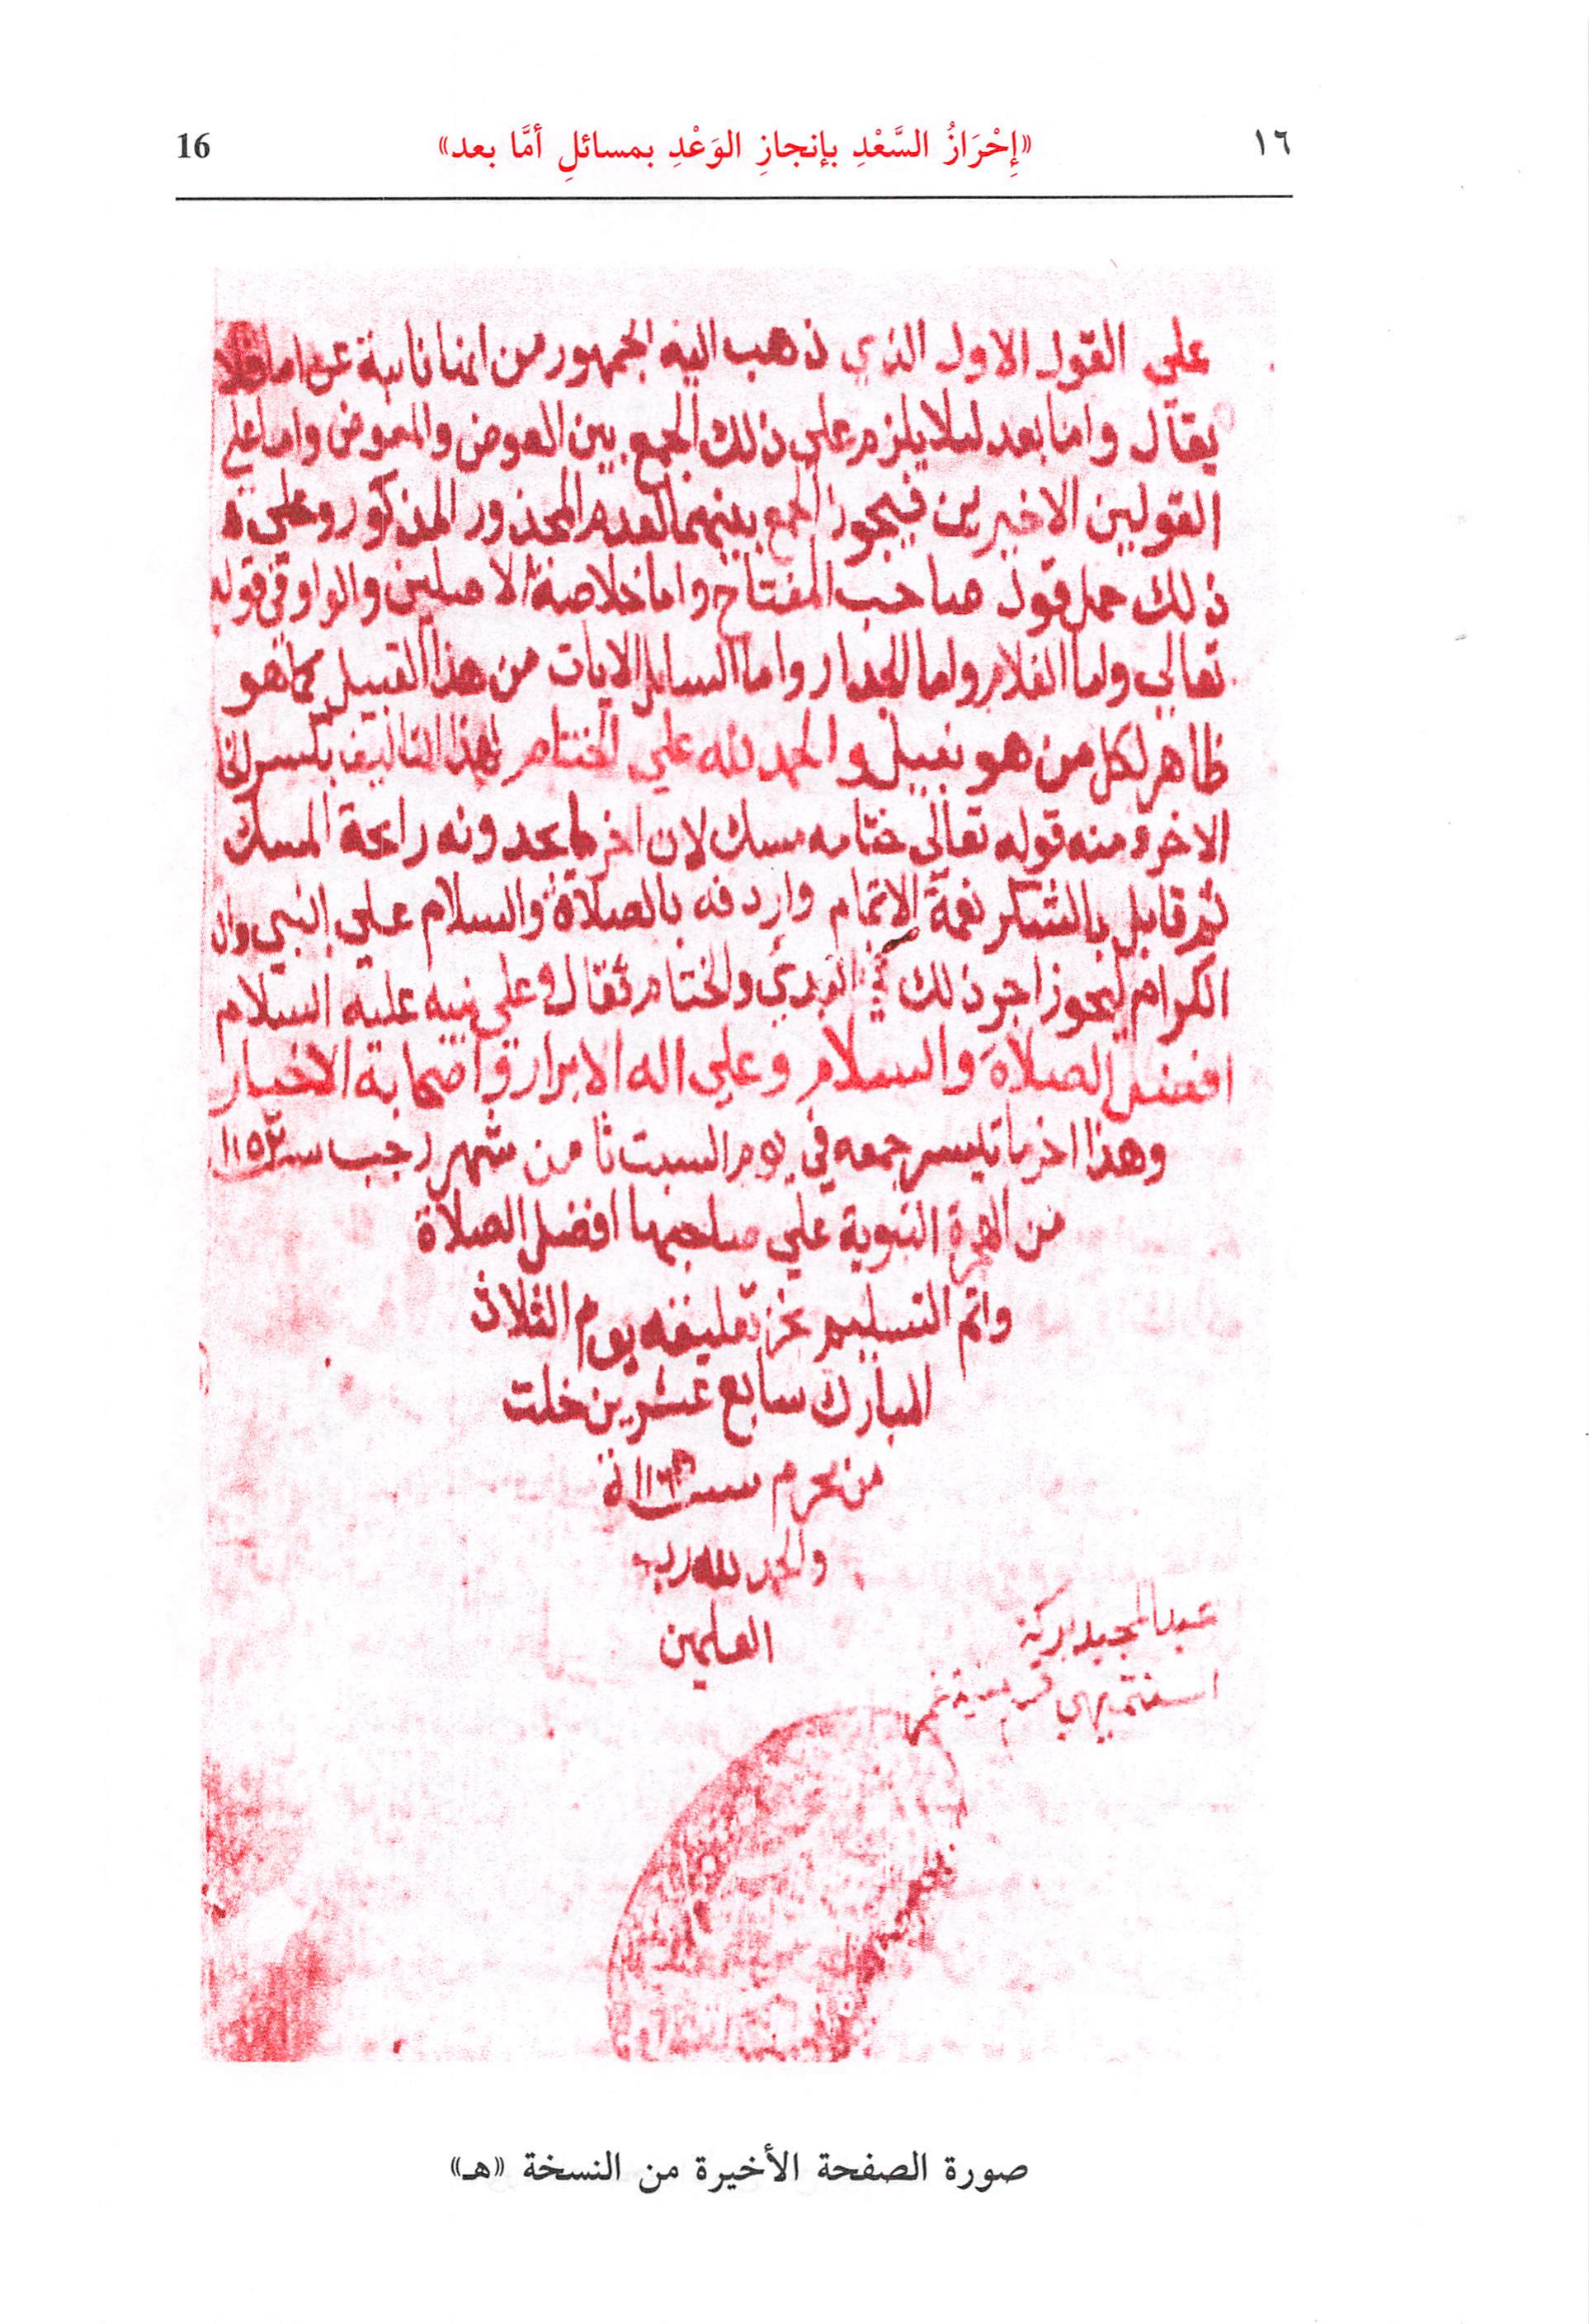 ١٦ «إِحْرَازُ السَّعْدِ بإنجازِ الوَعْدِ بمسائلِ أمَّا بعد» 16
علي القول الاول الذي ذهب اليه الجمهور من انها نايبة عن اما فلا
يقال واما بعد ليلا يلزم علي ذلك الجمع بين العوض والمعوض واما علي
القولين الاخيرين فيجوز الجمع بينهما لعدم المحذور المذكور وعلي
ذلك حمل قول صاحب المفتاح واما خلاصة الاصلين والواو في قوله
تعالي واما الغلام واما الجدار واما السايل الايات من هذا القبيل كما هو
ظاهر لكل من هو نبيل والحمد لله علي اختتام هذا التاليف بكسر الخا
الاخر ومنه قوله تعالي ختامه مسك لان اخر ما يجدونه رايحة المسك
ثم قابل بالشكر نعمة الاتمام واردفه بالصلاة والسلام علي النبي وال
الكرام ليحوز اجر ذلك في البدي والختام فقال وعلي نبيه عليه السلام
افضل الصلاة والسلام وعلي اله الابرار واصحابة الاخيار
وهذا اخر ما تيسر جمعه في يوم السبت ثامن شهر رجب سنة ١١٥٢
من الهجرة النبوية علي صاحبها افضل الصلاة
واتم التسليم نجز تعليقه يوم الثلاث
المبارك سابع عشرين خلت
من محرم سنة
والحمد لله رب
العلمين
عبد المجيد بركة
صورة الصفحة الأخيرة من النسخة «هـ»